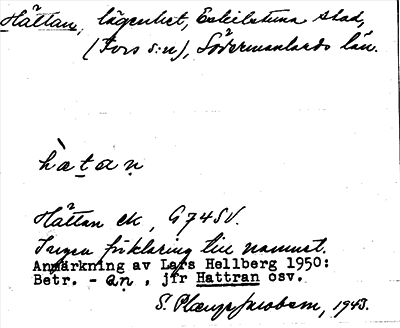 Hättan, lägenhet, Eskilstuna stad,
(Fors s:n), Södermanlands län.
hætaṇ
Hättan ek, G74SV.
Ingen förklaring till namnet.
Anmärkning av Lars Hellberg 1950:
Betr. - aṇ, jfr Hattran osv.
S. Plænge Jacobson, 1943.